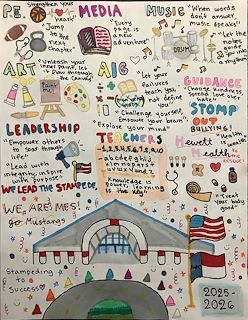 P.E.
"Strengthen your heart"
"Jump to the next chapter"
MEDIA
"Every page is a new adventure"
MUSIC
"When words don't answer, music speaks!"
"Let the notes guide
ART
"Unleash your inner artist, let it flow through the canvas"
Paint me!
AIG
"Let your failures teach you, not define you"
"Challenge yourself,
Empower your brain"
"Explore your mind"
GUIDANCE
"Choose kindness,
Spread love over hate"
STOMP
OUT
BULLYING
LEADERSHIP
"Empower others to soar through life"
"Lead with integrity, inspire with
WE LEAD THE STAMPEDE
TEACHERS
1,2,3,4,5,6,7,8,9,10
abcdefghijkl
mnopqrst
uvwxyz
Knowledge is power, learning is the key!
Health is
wealth
Health
"Treat your body good"
WE ARE MES!
go Mustangs
Stampeding to Success
2025-
2026